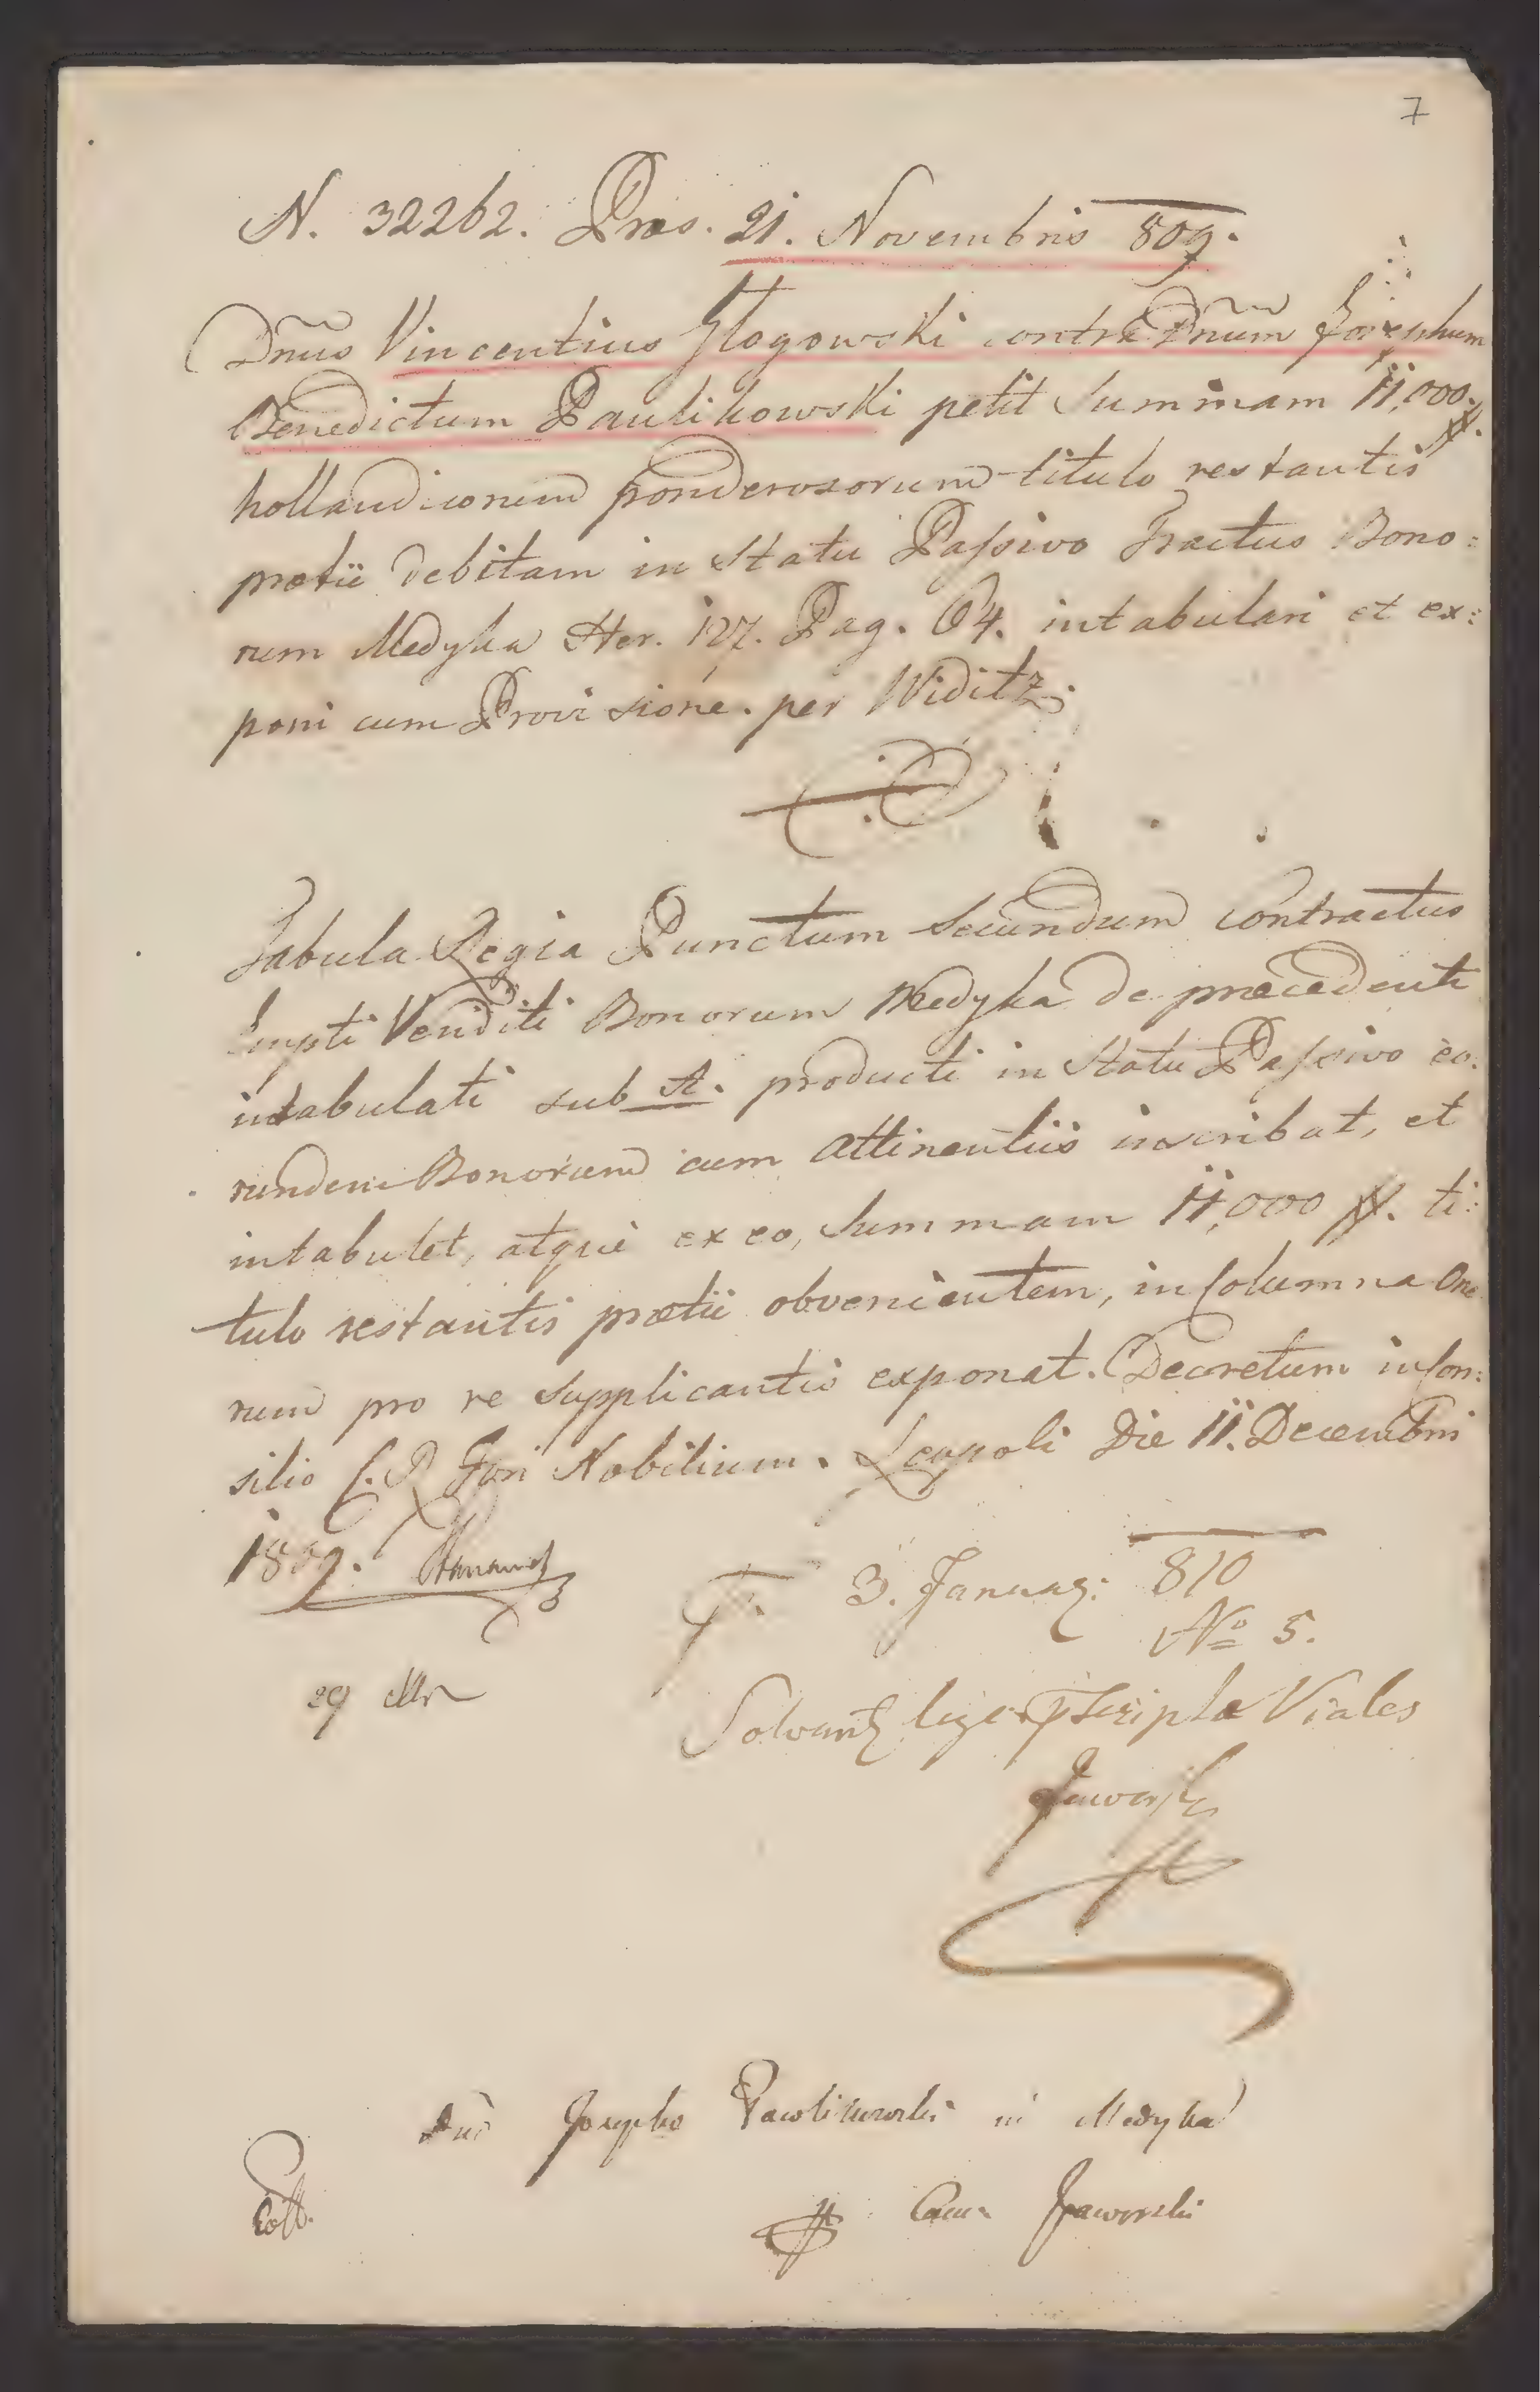 7
N. 32262. Præs. 21. Novembris 809.
Dnus Vincentius Głogowski contra Dnum Josephum
Benedictum Paulikowski petit Summam 11,000 #.
hollandicorum ponderosorum titulo restantis
prætii debitam in Statu Passivo Tractus Bono:
rum Medyka Her. 127. Pag. 64. intabulari et ex:
poni cum Provisione. per Widitz.
Tabula Regia Punctum Secundum contractus
Empti Venditi Bonorum Medyka de præcedenti
intabulati sub A. producti in Statu Passivo eo:
rundem Bonorum cum attinentiis inscribat, et
intabulet, atque ex eo, Summam 11,000 #. ti:
tulo restantis prætii obvenientem, in Columna One
rum pro re Supplicantis exponat. Decretum in Con:
silio C. R. Fori Nobilium. Leopoli Die 11. Decembris
1809.
3. Januar: 810
No 5.
29
Solvant lege Viales
Josepho Pawlikowski in Medyka
Coll.
Jaworski